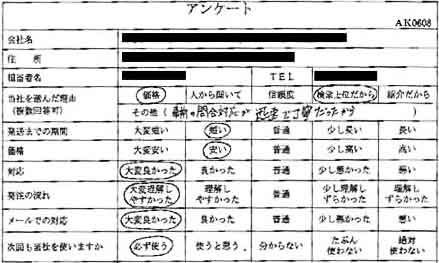 アンケート
AK0608
会社名
住 所
担当者名 TEL
当社を選んだ理由 (複数回答可) 価格 人から聞いて 信頼度 検索上位だから 紹介だから
その他 ( 最初の問合対応が迅速で丁寧だったから )
発送までの期間 大変短い 短い 普通 少し長い 長い
価格 大変安い 安い 普通 少し高い 高い
対応 大変良かった 良かった 普通 少し悪かった 悪い
発注の流れ 大変理解しやすかった 理解しやすかった 普通 少し理解しずらかった 理解しずらかった
メールでの対応 大変良かった 良かった 普通 少し悪かった 悪い
次回も当社を使いますか 必ず使う 使うと思う 分からない たぶん使わない 絶対使わない